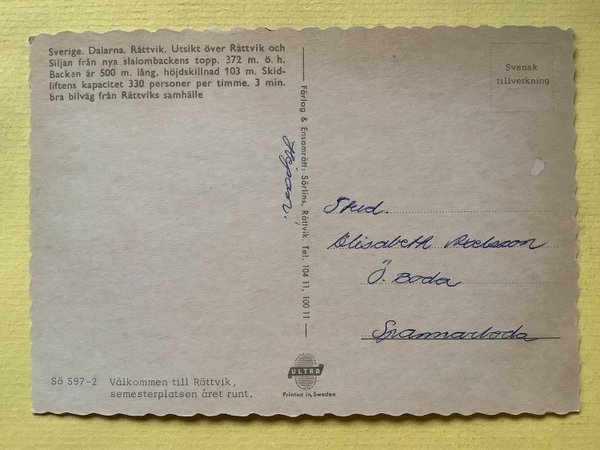 Sverige. Dalarna. Rättvik. Utsikt över Rättvik och
Siljan från nya slalombackens topp. 372 m. ö. h.
Backen är 500 m. lång, höjdskillnad 103 m. Skid-
liftens kapacitet 330 personer per timme. 3 min.
bra bilväg från Rättviks samhälle
Svensk
tillverkning
Förlag & Ensamrätt: Sörlins, Rättvik. Tel. 104 11, 100 11
Stud.
Elisabeth
Ö. Boda
Spannarboda
Sö 597-2 Välkommen till Rättvik,
semesterplatsen året runt.
ULTRA
Printed in Sweden